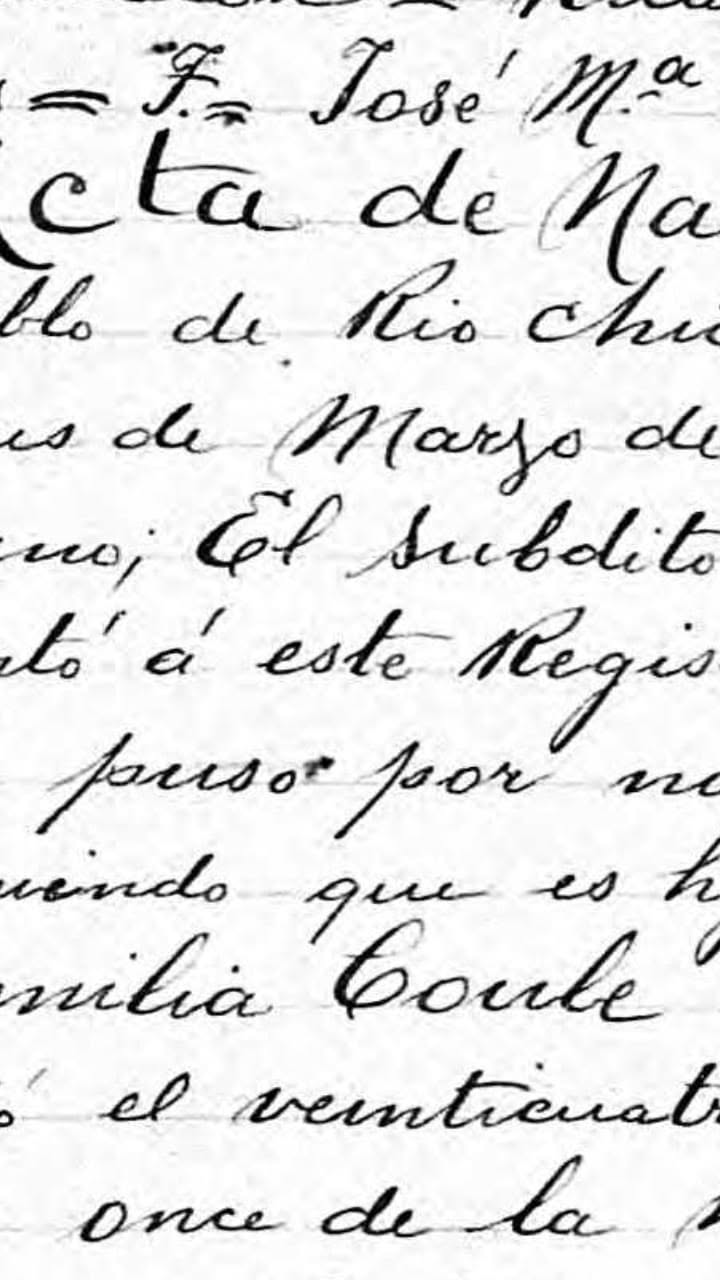 = F.= José M.ª
cta de Na
blo de Rio Chu
us de Marzo de
eno; El Subdito
ntó á este Regis
puso por no
uiendo que es h
milia Coule
ó el veinticuatr
once de la